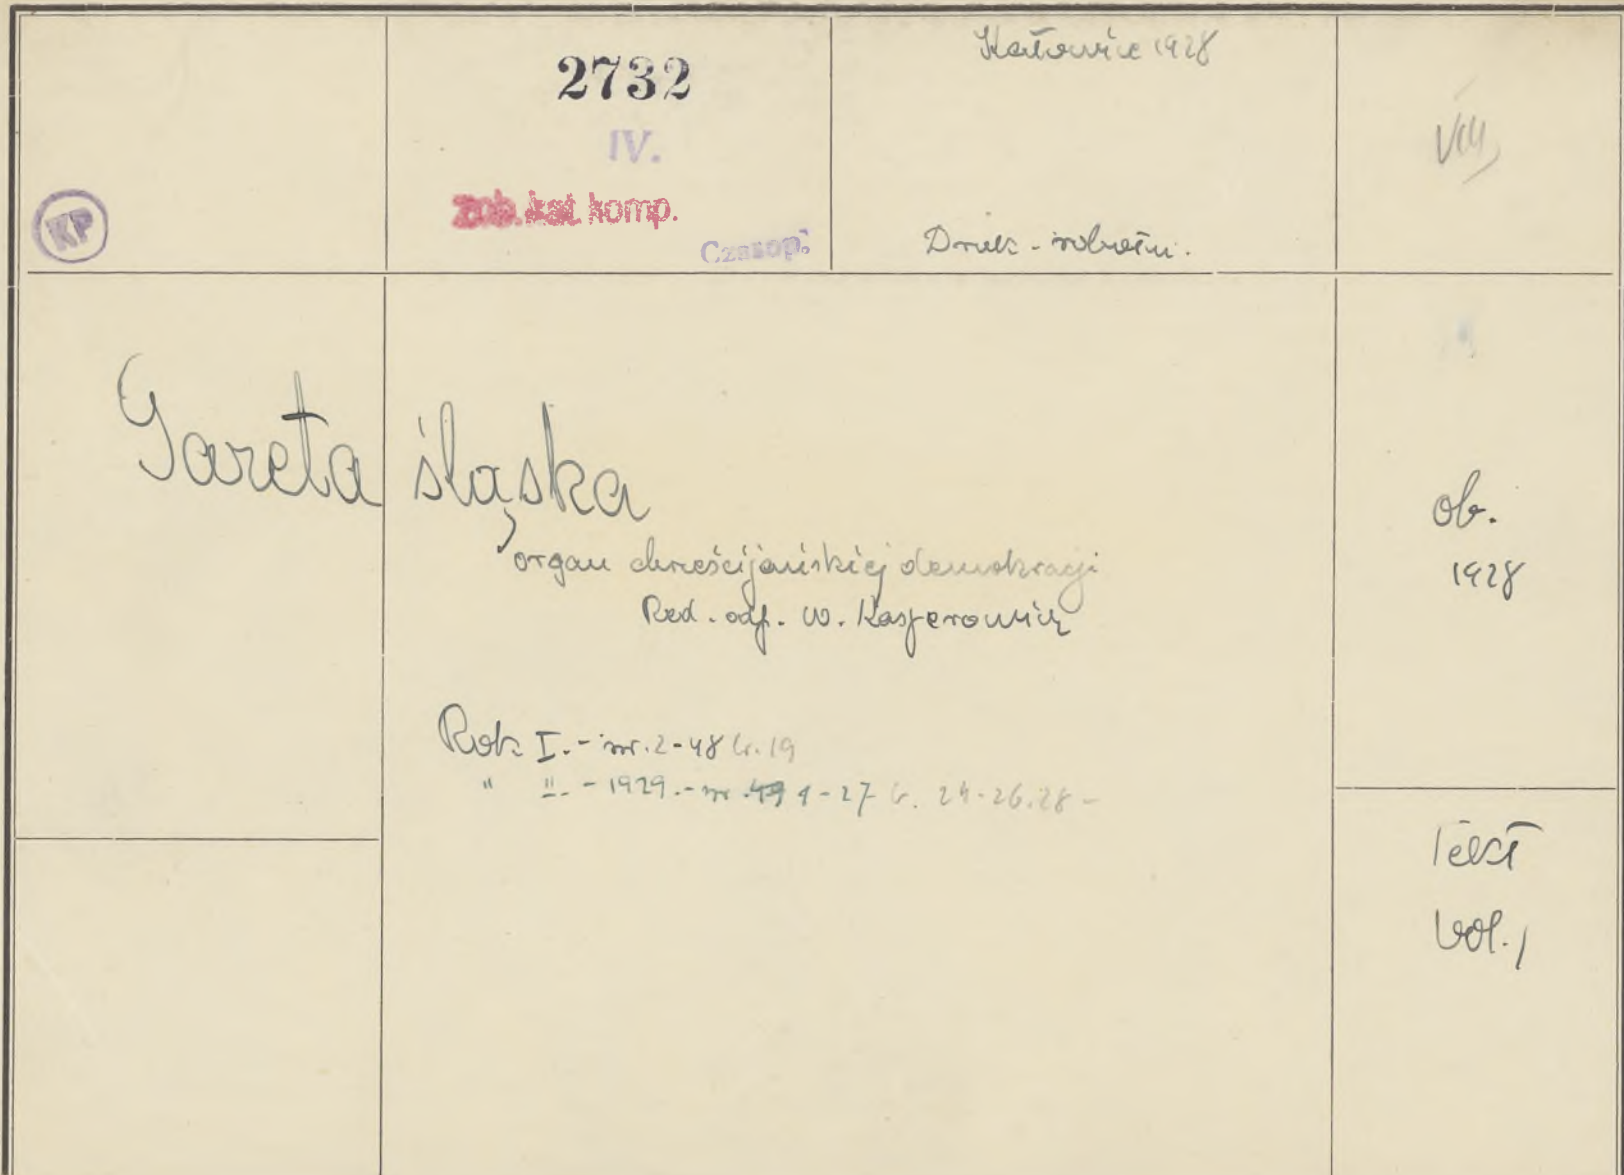 2732
IV.
zob. kat. komp.
Czasop.
KP
Katowice 1928
Druk - robotn.
VIII
Gazeta śląska
organ chrześcijańskiej demokracji
Red. odp. W. Kasperowicz
Rok I. - nr. 2-48 br. 19
" II. - 1929. - nr. 49 1-27 b. 24-26.28 -
ob.
1928
Tekst
vol. 1